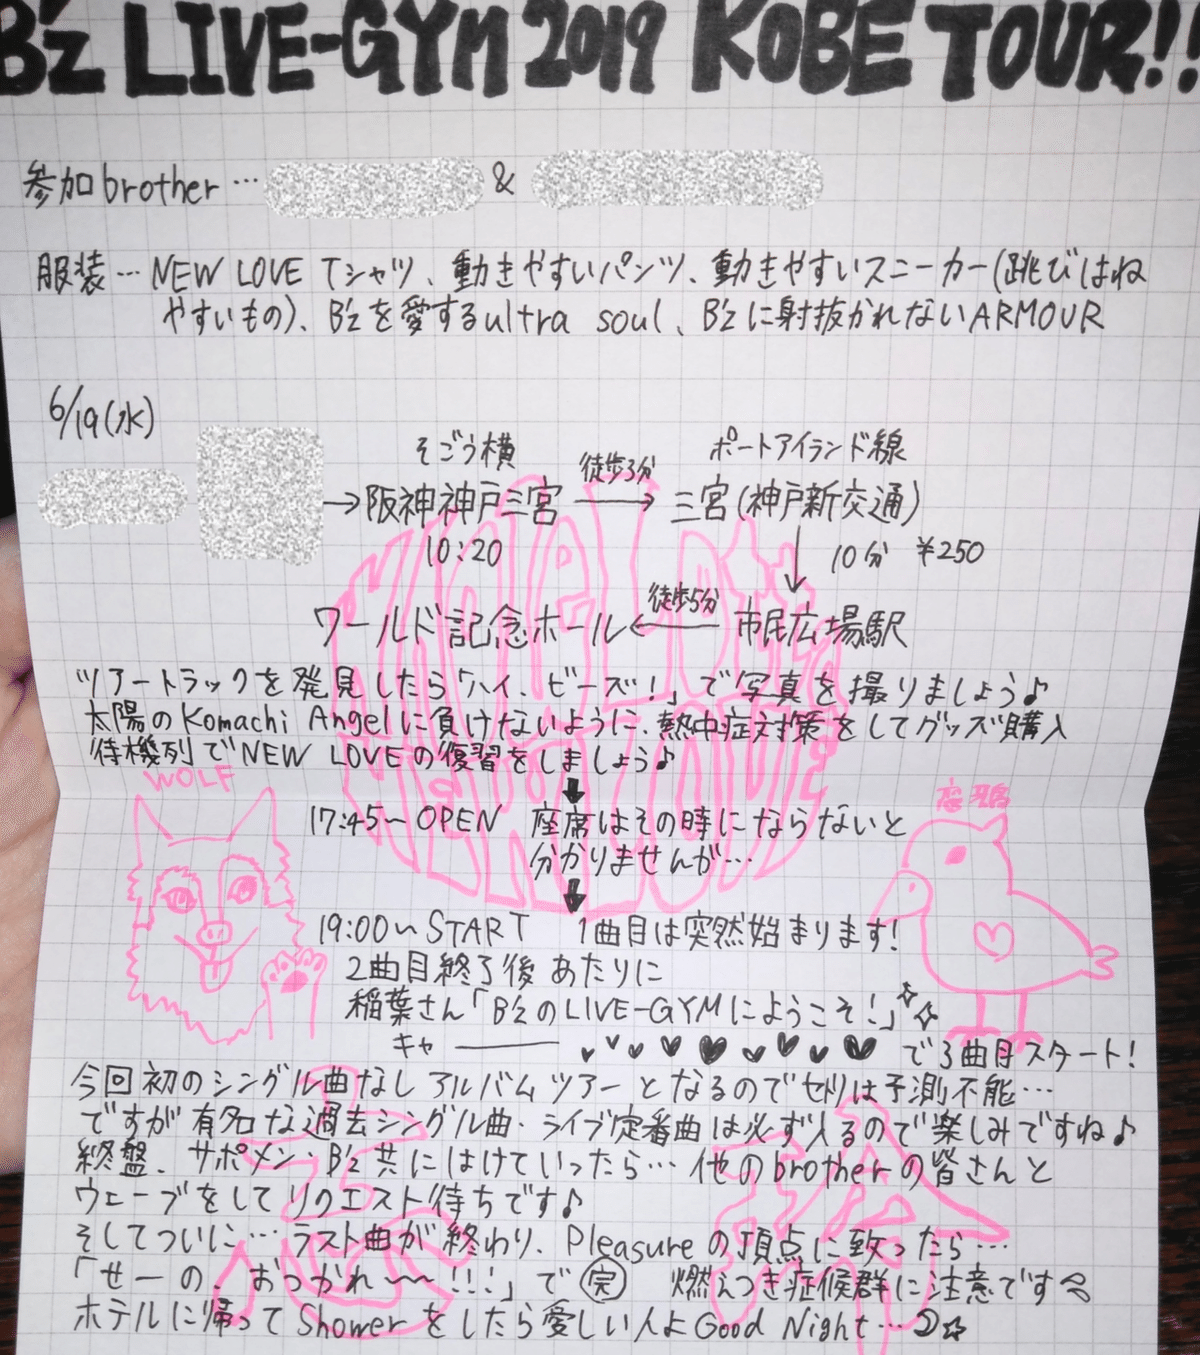 B'z LIVE-GYM 2019 KOBE TOUR!!
参加brother… &
服装…NEW LOVE Tシャツ、動きやすいパンツ、動きやすいスニーカー(跳びはね
やすいもの)、B'zを愛するultra soul、B'zに射抜かれないARMOUR
6/19(水)
そごう横 徒歩3分 ポートアイランド線
→阪神神戸三宮 → 三宮(神戸新交通)
10:20 ↓ 10分 ¥250
ワールド記念ホール ← 徒歩5分 市民広場駅
ツアートラックを発見したら「ハイ、ビーズ!」で写真を撮りましょう♪
太陽のKomachi Angelに負けないように、熱中症対策をしてグッズ購入
待機列でNEW LOVEの復習をしましょう♪
WOLF
↓
17:45~OPEN 座席はその時にならないと
分かりませんが…
↓
19:00~START 1曲目は突然始まります!
2曲目終了後あたりに
稲葉さん「B'zのLIVE-GYMにようこそ!」
キャ―――― で3曲目スタート!
今回初のシングル曲なしアルバムツアーとなるのでセトリは予測不能…
ですが有名な過去シングル曲・ライブ定番曲は必ず入るので楽しみですね♪
終盤、サポメン・B'z共にはけていったら…他のbrotherの皆さんと
ウェーブをしてリクエスト待ちです♪
そしてついに…ラスト曲が終わり、Pleasureの頂点に致ったら…
「せーの、おつかれ~~!!!」で完 燃えつき症候群に注意です
ホテルに帰ってShowerをしたら愛しい人よGood Night…☽☆